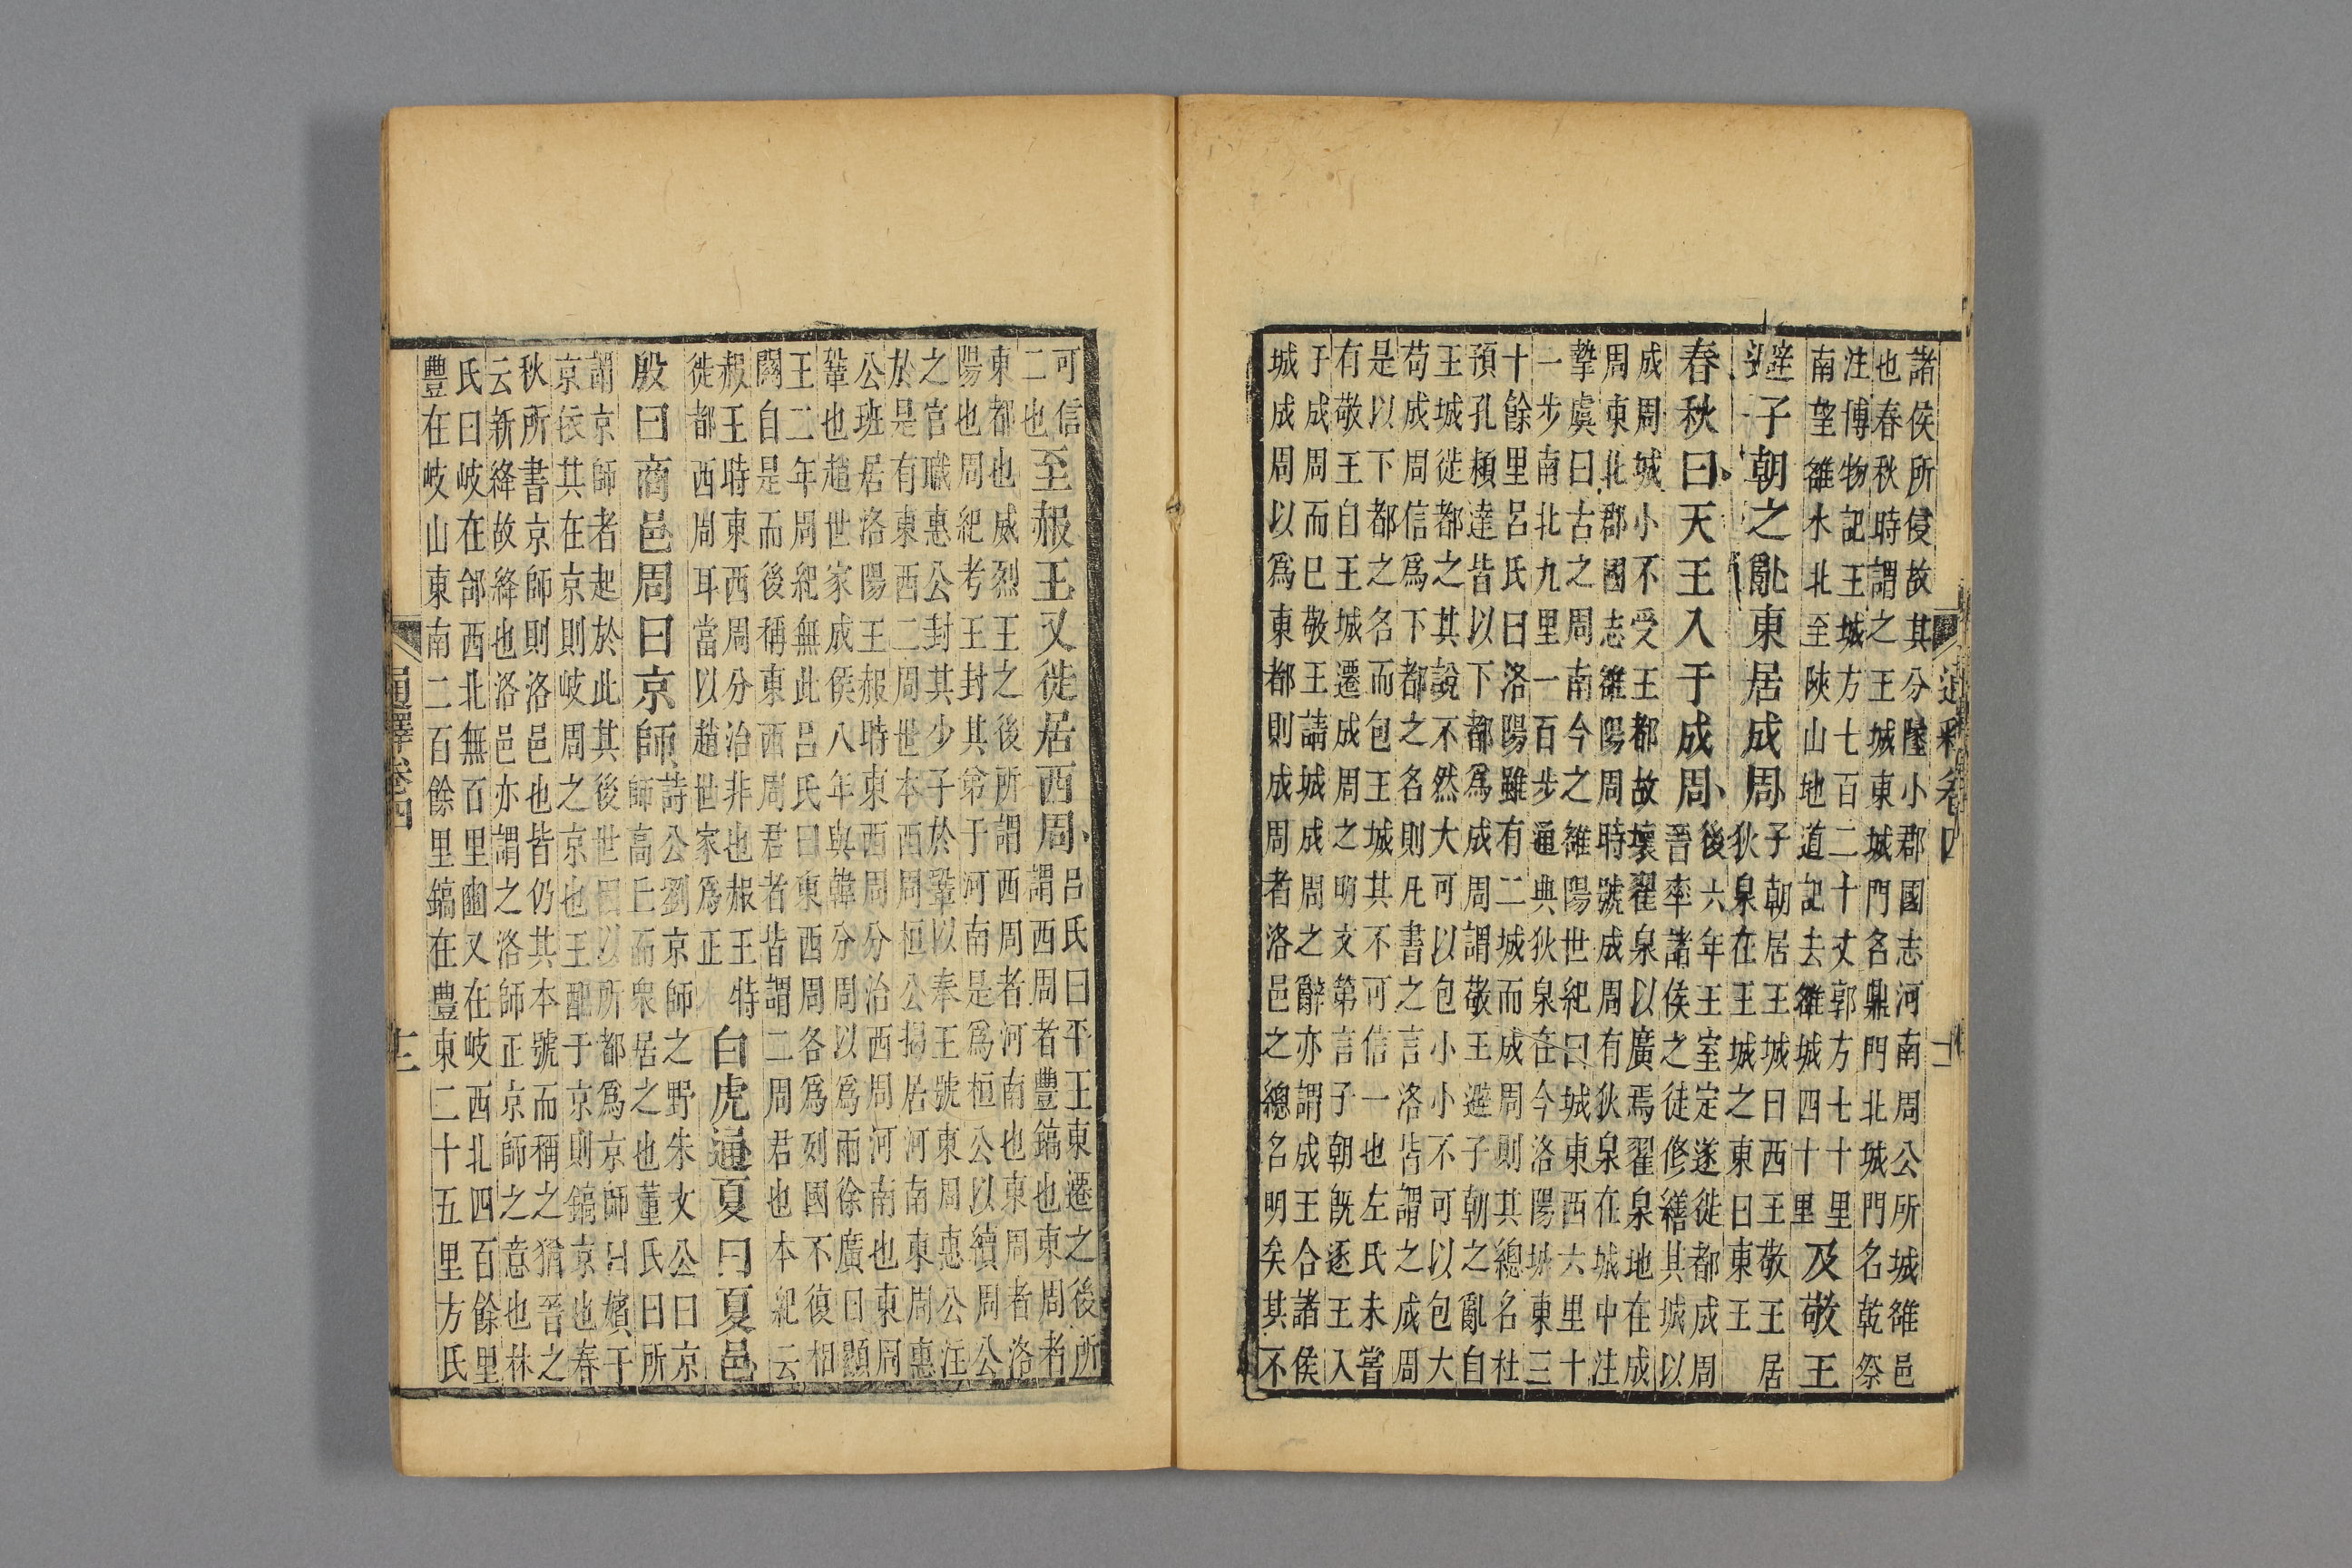 通釋卷四
諸侯所侵故其分墬小郡國志河南周公所城雒邑
也春秋時謂之王城東城門名鼎門北城門名乾祭
注博物記王城方七百二十丈郭方七十里
南望雒水北至陝山地道記去雒城四十里
及敬王
避子朝之亂東居成周
子朝居王城曰西王敬王居
狄泉在王城之東曰東王
春秋曰天王入于成周
後六年王室定遂徙都成周
晉率諸侯之徒修繕其城以
成周城小不受王都故壞翟泉以廣焉翟泉地在成
周東北郡國志雒陽周時號成周有狄泉在城中注
摯虞曰古之周南今之雒陽世紀曰城東西六里十
一步南北九里一百步通典狄泉在今洛陽城東三
十餘里呂氏曰洛陽雖有二城而成周則其總名杜
預孔頴達皆以下都爲成周謂敬王避子朝之亂自
王城徙都之其說不然大可以包小小不可以包大
苟成周信爲下都之名則凡書之言洛皆謂之成周
是以下都之名而包王城其不可信一也左氏未嘗
有敬王自王城遷成周之明文第言子朝既逐王入
于成周而已敬王請城成周之辭亦謂成王合諸侯
城成周以爲東都則成周者洛邑之總名明矣其不
可信
二也
至赧王又徙居西周
呂氏曰平王東遷之後所
謂西周者豐鎬也東周者
東都也威烈王之後所謂西周者河南也東周者洛
陽也周紀考王封其弟于河南是爲桓公以續周公
之官職惠公封其少子於鞏以奉王號東周惠公注
於是有東西二周世本西周桓公揭居河南東周惠
公班居洛陽王赧時東西周分治西周河南也東周
鞏也趙世家成侯八年與韓分周以爲兩徐廣曰顯
王二年周紀無此呂氏曰東西周各爲列國不復相
關自是而後稱東西周君者皆謂二周君也本紀云
赧王時東西周分治非也赧王特
徙都西周耳當以趙世家爲正
白虎通夏曰夏邑
殷曰商邑周曰京師
詩公劉京師之野朱文公曰京
師高丘而衆居之也董氏曰所
謂京師者起於此其後世因以所都爲京師曰嬪于
京依其在京則岐周之京也王配于京則鎬京也春
秋所書京師則洛邑也皆仍其本號而稱之猶晉之
云新絳故絳也洛邑亦謂之洛師正京師之意也林
氏曰岐在郃西北無百里豳又在岐西北四百餘里
豐在岐山東南二百餘里鎬在豐東二十五里方氏
通釋卷四